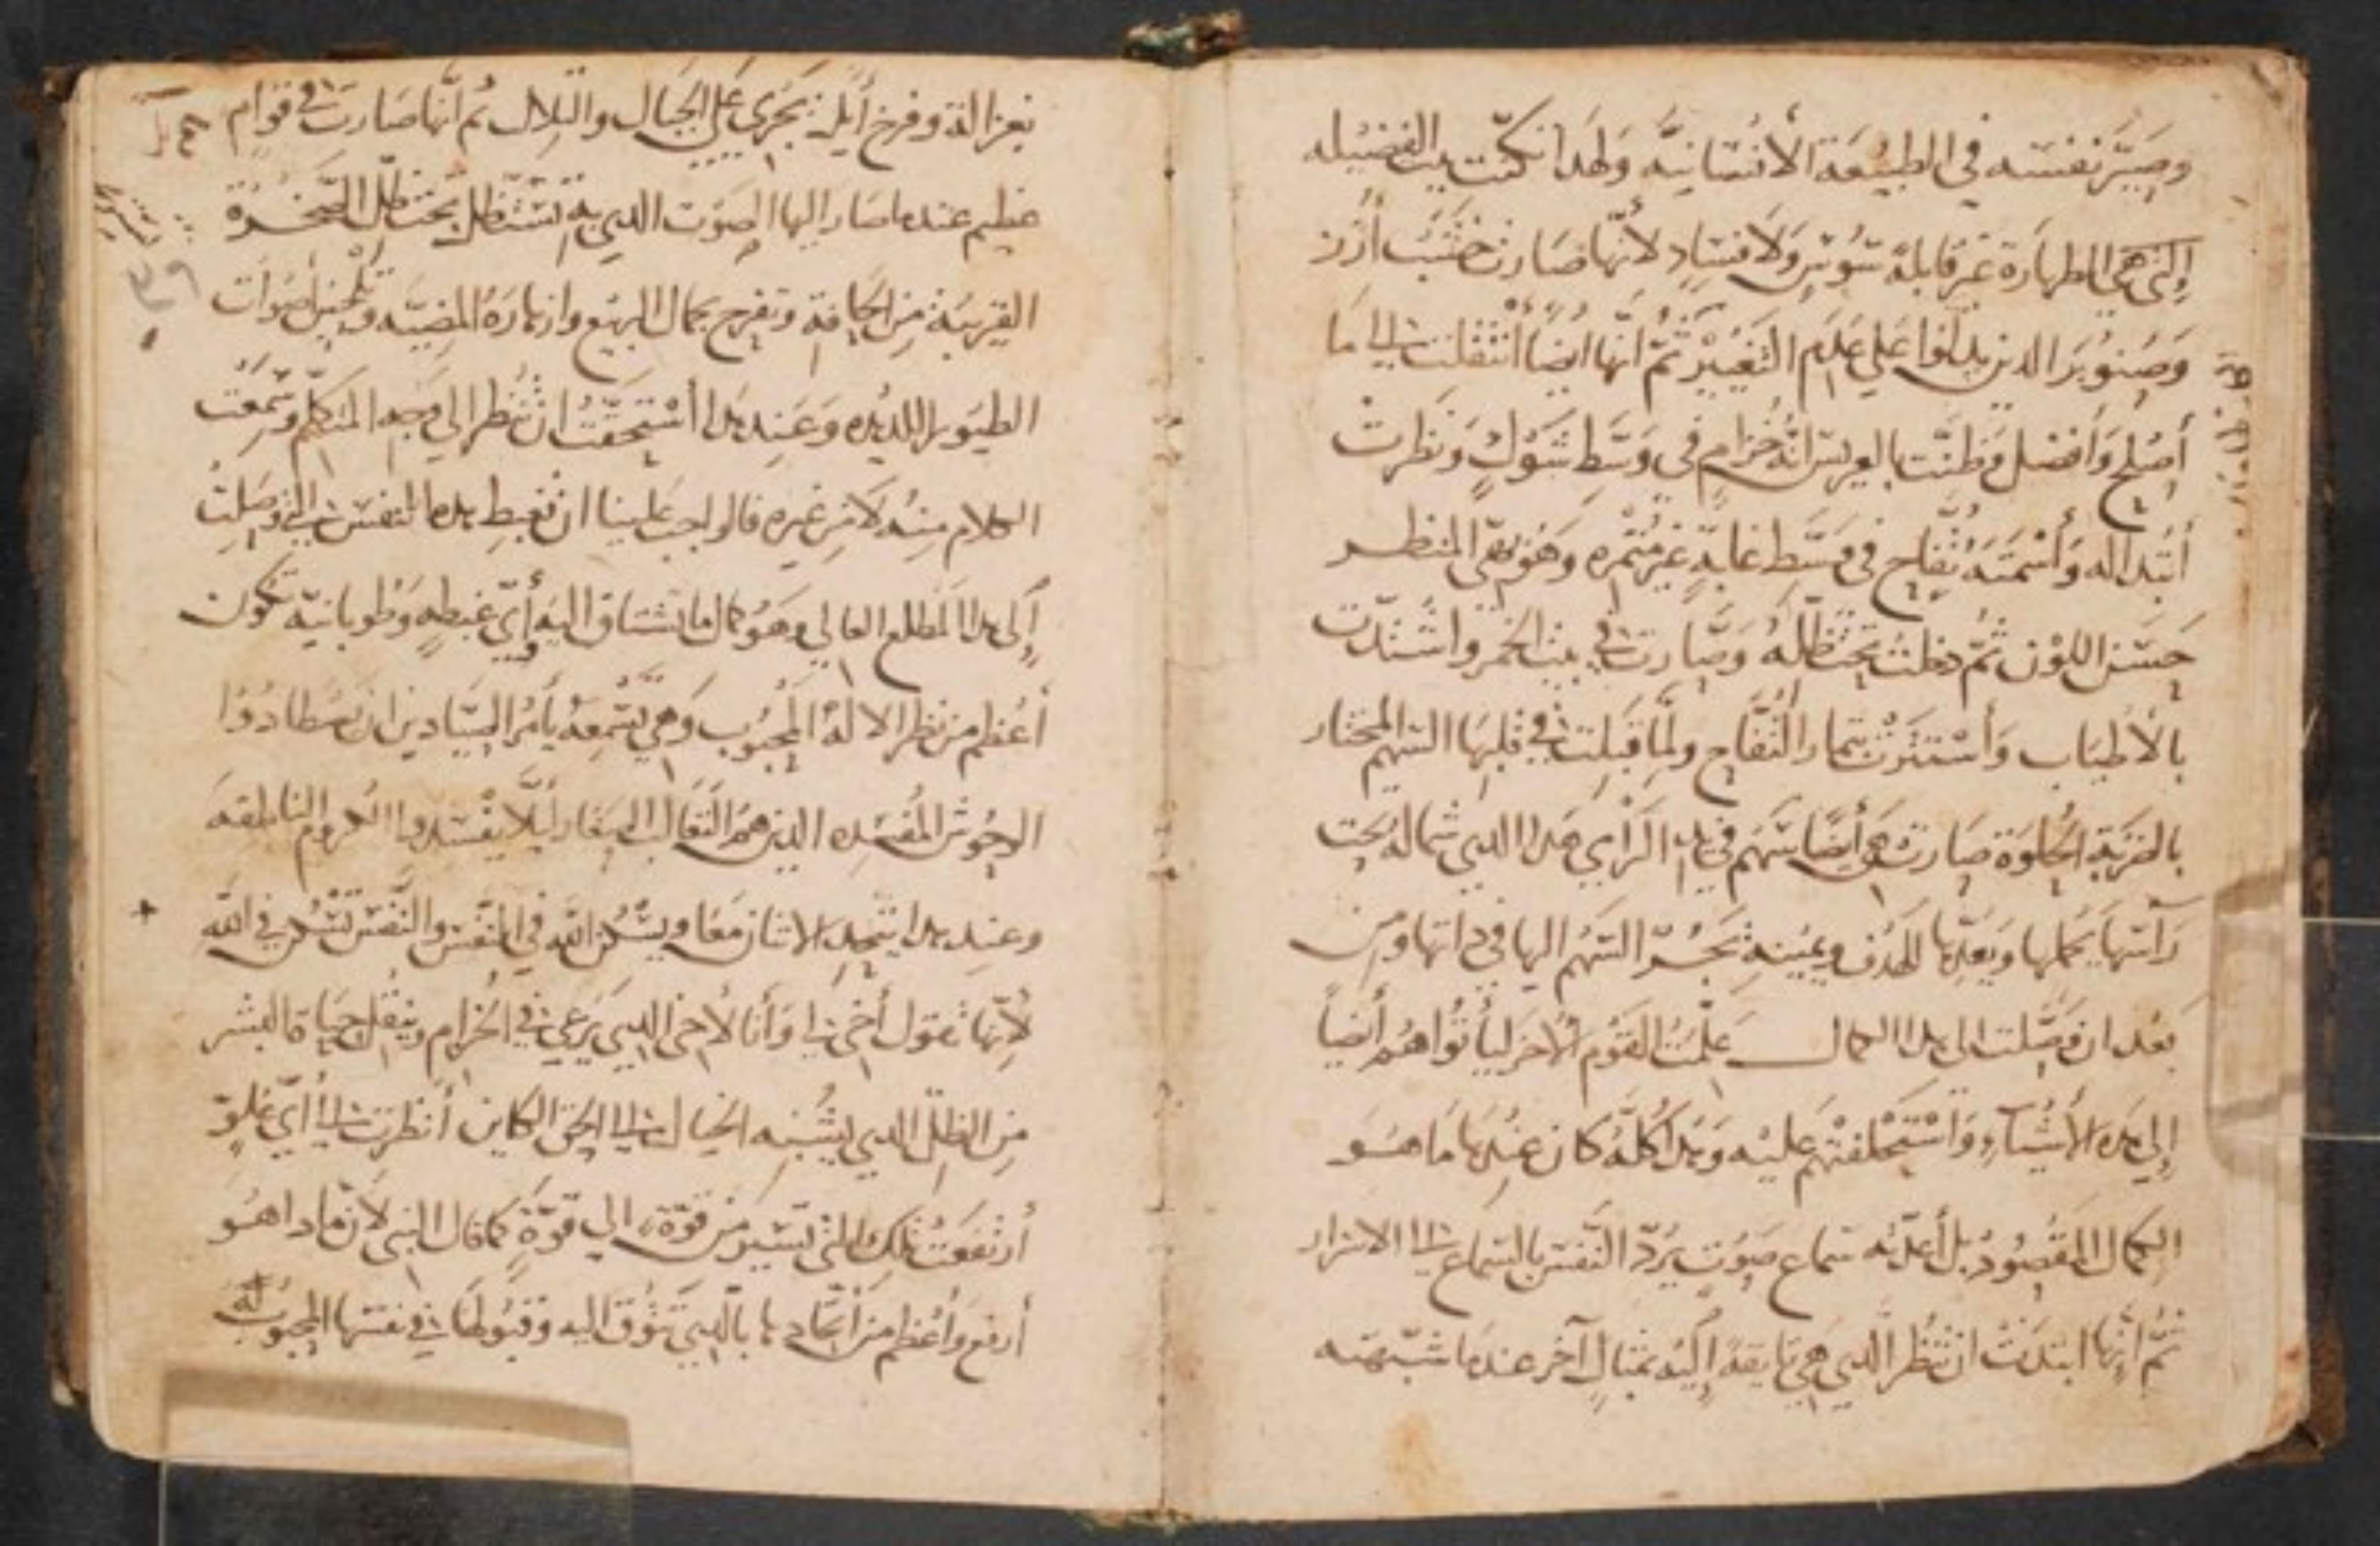 وصَيَّر نفسَه في الطبيعَة الأنسَانيَّه ولهَذا نكتّت بيت الفضيله
التي هي الطهارة غير قابلة سُوسٍ وَلا فسَادٍ لأنّها صَارت خشَبَ أرُز
وَصَنوبَر الدين يدلوا عَلي عَدَم التغيير ثمّ انّها ايضاً أنتقلت الي مَا
أصْلح وَأفضل وظنّت بالعريس انّهُ خزام في وَسَط شَوكٍ وَنظَرت
أبتداله وَأسمتَه تُفّاح في وسَط غابةٍ غير مُثمره وَهَو بهيّ المنظر
حَسَن اللوْن ثمّ دخلت تحت ظلّه وَصَارت في بيت الخمر واشتدّت
بالأطياب وَأستترت بثمار التُفّاح ولمّا قبلت في قلبهَا السّهم المختار
بالضربة الحُلوَة صَارت هي أيضًا سَهم في يد الرامي هَدا الدي شماله تحت
رَاسَها يحملها ويعدّها للهدف ويمينه يجُرّ السّهم اليها في داتها ومن
بَعْد ان وصَلت الي هدا الكمال عَلّمت القَوْم الأخر ليأتُوا هُم أيضاً
إلي هده الأشيآءِ وَأستحلفتهم عليْه وَهَدا كلّه كان عندهَا مَا هَو
الكمال المقصُود بل أعدّته سَماع صَوْت يردّ النّفس بالسّماع الي الاسرار
ثمّ أنّها ابتدت ان تنظر الدي هي تايقة إليه بمثالٍ آخر عندمَا شبّهته
بغزالة وفرخ أيّل يجري عَلي الجبال والتلال ثم انّها صَارت في قوام
عظيم عندما صَار إليها الصَوت الدي به تستظل تحت ظلّ الصَّخرة
القريبَة من الحَافة وتفرح بجمال الربيع وازهَارهُ المضيّه وتلحين أصَوات
الطيَور اللديده وَعَند هَدا أستحقّت ان تنظر الي وَجه المتكلّم وَسمعت
الكلام منهُ لا مِن غيره فالواجب علينا ان نغبط هده النفس التي وَصَلت
إلي هَدا المطلع العالي وهَو كمال ما تشتاق اليه وأيّ غبطةٍ وَطُوبانيّه تكون
أعْظم من نظر الالهُ المحبُوب وَهي تسمعهُ يأمُر الصيّادين ان يصْطادُوا
الوحُوش المفسده الدين هُم الثعَالب الصِغار ليلاّ يفسدوا الكروم الناطقه
وعند هدا يتّحد الاتنان معًا ويسْكُن اللّه في النّفس والنّفس تسْكن في الله
لأنّها تقول أخي لي وَأنا لأخي الدي يَرعي في الخزام وينقل حيَاة البشر
مِن الظلّ الدي يشْبه الخيال الي الحق الكاين أنظرت الي أيّ علوٍ
أرتفَعت تلك التي تسير مَن قوّة الي قوّةٍ كما قال النبي لان مادا هَو
أرفع وَأعْظم من اتّحادها بالدي تتوق اليه وقبُولهَا في نفسها المحبُوب